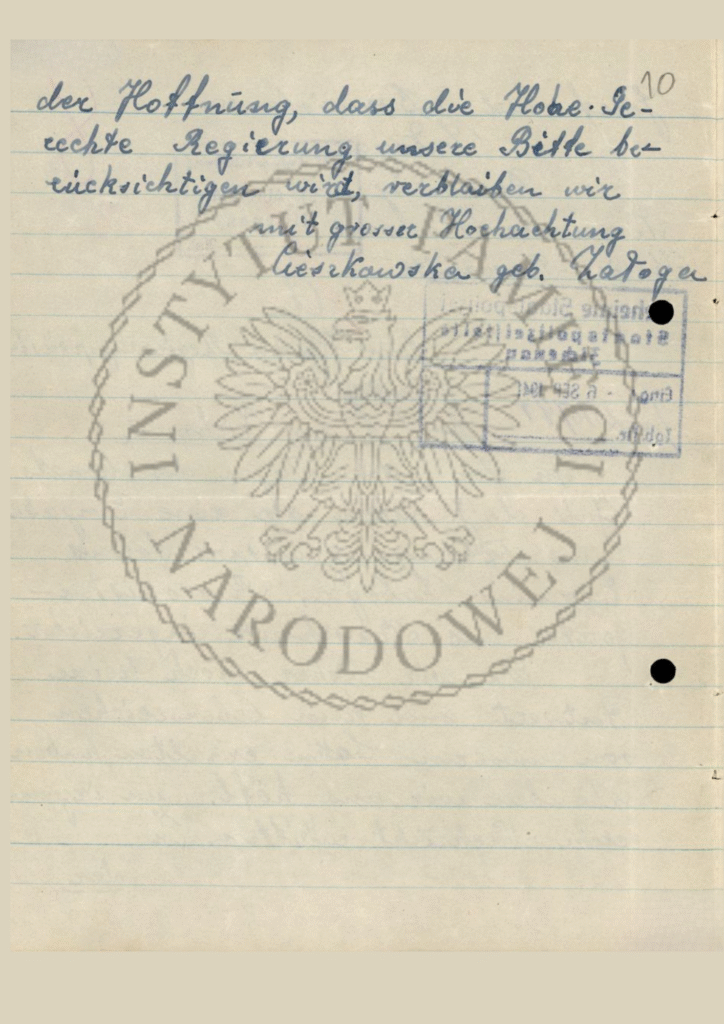 10
der Hoffnung, dass die Hohe Ge-
rechte Regierung unsere Bitte be-
rücksichtigen wird, verbleiben wir
mit grosser Hochachtung
Cieszkowska geb. Załoga
Staatspolizeistelle
Zichenau
Eing. - 6. SEP. 194
Tgb. Nr.
INSTYTUT PAMIĘCI
NARODOWEJ